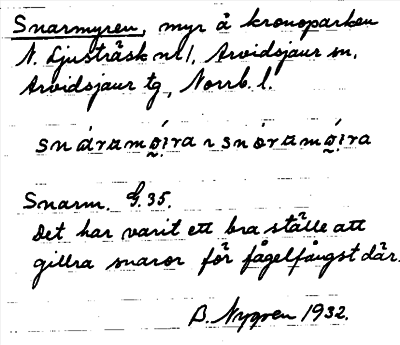 Snarmyren, myr å kronoparken
N. Ljusträsk nr 1, Arvidsjaur sn,
Arvidsjaur tg, Norrb. l.
snáramǫ́ira ~ snǫ́ramǫ́ira
Snarm. G. 35.
Det har varit ett bra ställe att
gillra snaror för fågelfångst där.
B. Nygren 1932.